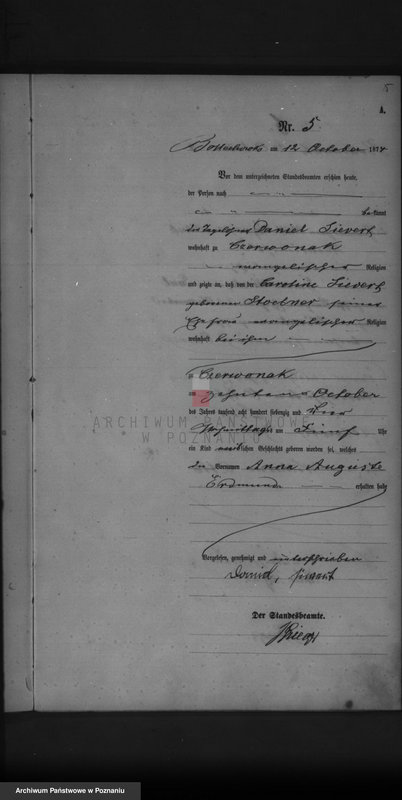 5
A.
Nr. 5
am 12 October 1874
Vor dem unterzeichneten Standesbeamten erschien heute,
der Person nach
bekannt
der Tagelöhner Daniel Sievert
wohnhaft zu Czerwonak
evangelischer Religion
und zeigte an, daß von der Caroline Sievert
geborenen Stoebner seiner
Ehefrau evangelischer Religion
wohnhaft bei ihm
zu Czerwonak
am zehnten October
des Jahres tausend acht hundert siebenzig und vier
Nachmittags um Fünf Uhr
ein Kind weiblichen Geschlechts geboren worden sei, welches
die Vornamen Anna Auguste
Erdmunde erhalten habe
Vorgelesen, genehmigt und unterschrieben
Daniel, Siewert
Der Standesbeamte.
ARCHIWUM PAŃSTWOWE
W POZNANIU
Archiwum Państwowe w Poznaniu